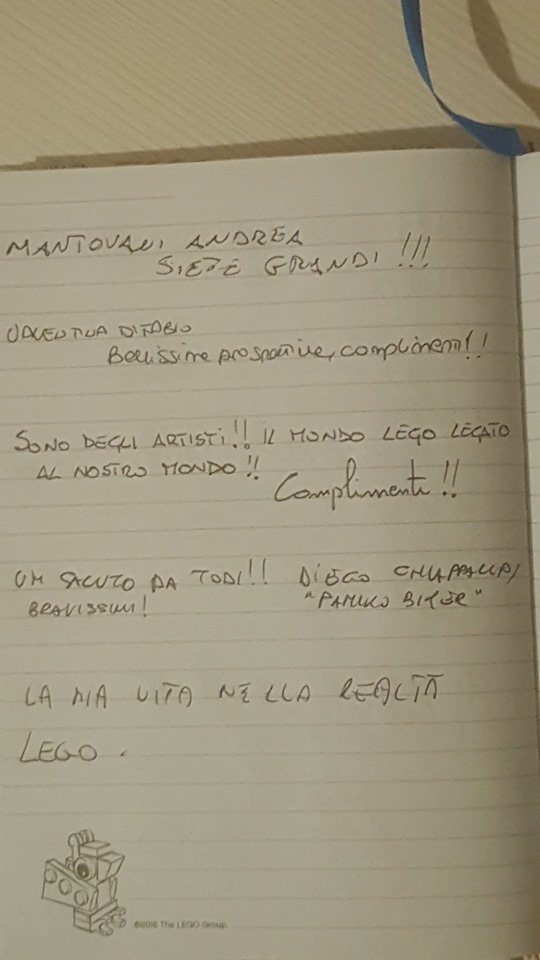 MANTOVANI ANDREA
SIETE GRANDI !!!
DI FABIO
Bellissime prospettive, complimenti!!
SONO DEGLI ARTISTI!! IL MONDO LEGO LEGATO
AL NOSTRO MONDO!!
Complimenti!!
UN SALUTO DA TODI!! DIEGO
BRAVISSIMI!
LA MIA VITA NELLA REALTÀ
LEGO.
©2016 The LEGO Group.